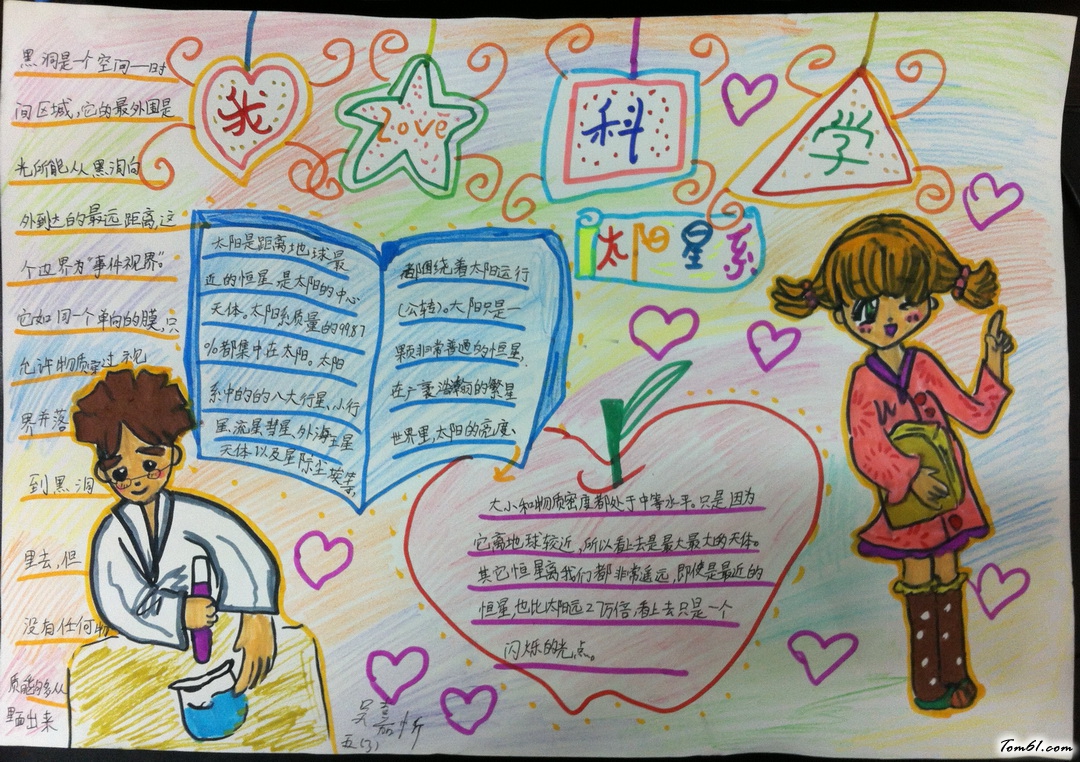 我
Love
科
学
黑洞是一个空间—时
间区域，它的最外围是
光所能从黑洞向
外到达的最远距离，这
个边界为"事件视界"。
它如同一个单向的膜，只
允许物质穿过视
界并落
到黑洞
里去，但
没有任何物
质能够从
里面出来
太阳星系
太阳是距离地球最
近的恒星，是太阳的中心
天体。太阳系质量的99.87
%都集中在太阳。太阳
系中的的八大行星、小行
星、流星、彗星、外海王星
天体以及星际尘埃等，
都围绕着太阳运行
（公转）。太阳只是一
颗非常普通的恒星，
在广袤浩瀚的繁星
世界里，太阳的亮度、
大小和物质密度都处于中等水平。只是因为
它离地球较近，所以看上去是最大最大的天体。
其它恒星离我们都非常遥远，即使是最近的
恒星，也比太阳远27万倍，看上去只是一个
闪烁的光点。
吴嘉忻
五（3）
Tom61.com